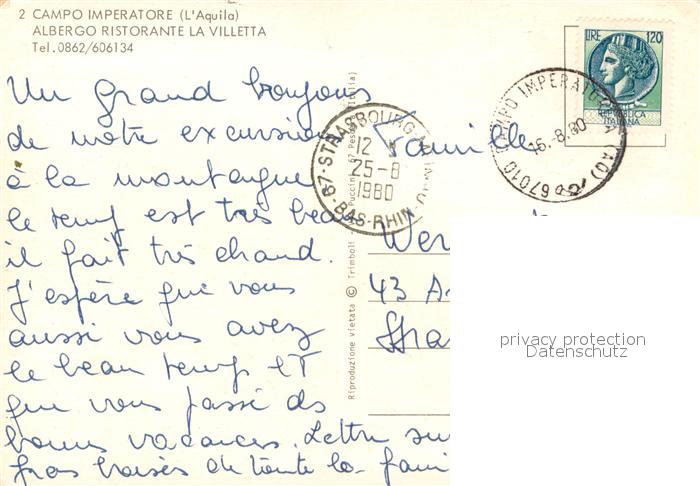 2 CAMPO IMPERATORE (L'Aquila)
ALBERGO RISTORANTE LA VILLETTA
Tel. 0862/606134
LIRE 120
REPVBBLICA
ITALIANA
CAMPO IMPERATORE (AQ)
16.8.80
67010
67-STRASBOURG
12
25-8
1980
BAS-RHIN
Riproduzione vietata © Trimboli
Un grand bonjour
de notre excursion
à la montagne
le temps est très beau
il fait très chaud.
J'espère que vous
aussi vous avez
le beau temps ET
que vous passé ds
bonnes vacances. Lettre sui
gros baisés de toute la fami
Famille
Wer
43 A
Stra
privacy protection
Datenschutz